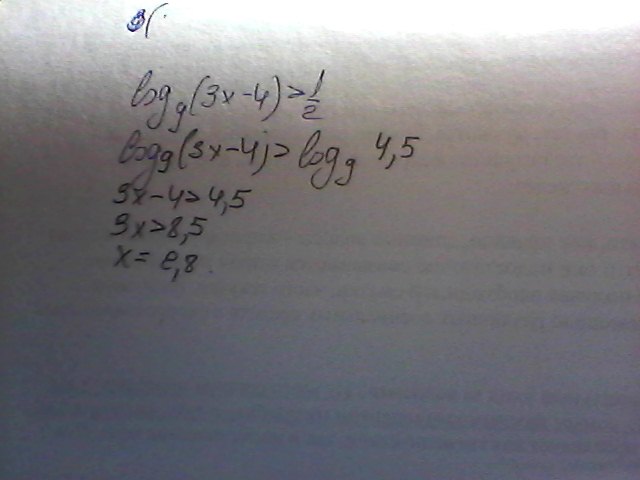 log₉(3x-4)>1/2
log₉(3x-4)>log₉ 4,5
3x-4>4,5
3x>8,5
x=2,8.